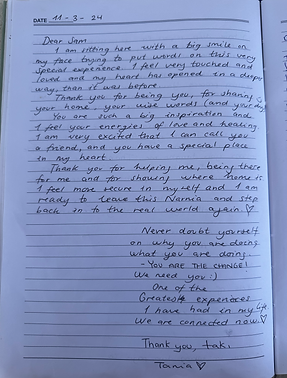 DATE 11-3-24
Dear Sam
I am sitting here with a big smile on
my face trying to put words on this very
special experience. I feel very touched and
loved and my heart has opened in a deeper
way, than it was before.
Thank you for being you, for sharing
your home, your wise words (and your
You are such a big inspiration and
I feel your energies of love and healing.
I am very excited that I can call you
a friend, and you have a special place
in my heart.
Thank you for helping me, being there
for me and for showing where home is
I feel more secure in myself and I am
ready to leave this Narnia and step
back in to the real world again. ♡
Never doubt yourself
on why you are doing
what you are doing.
- YOU ARE THE CHANGE!
We need you :)
One of the
Greatest experiences
I have had in my life.
We are connected now. ♡
Thank you, tak,
Tania ♡